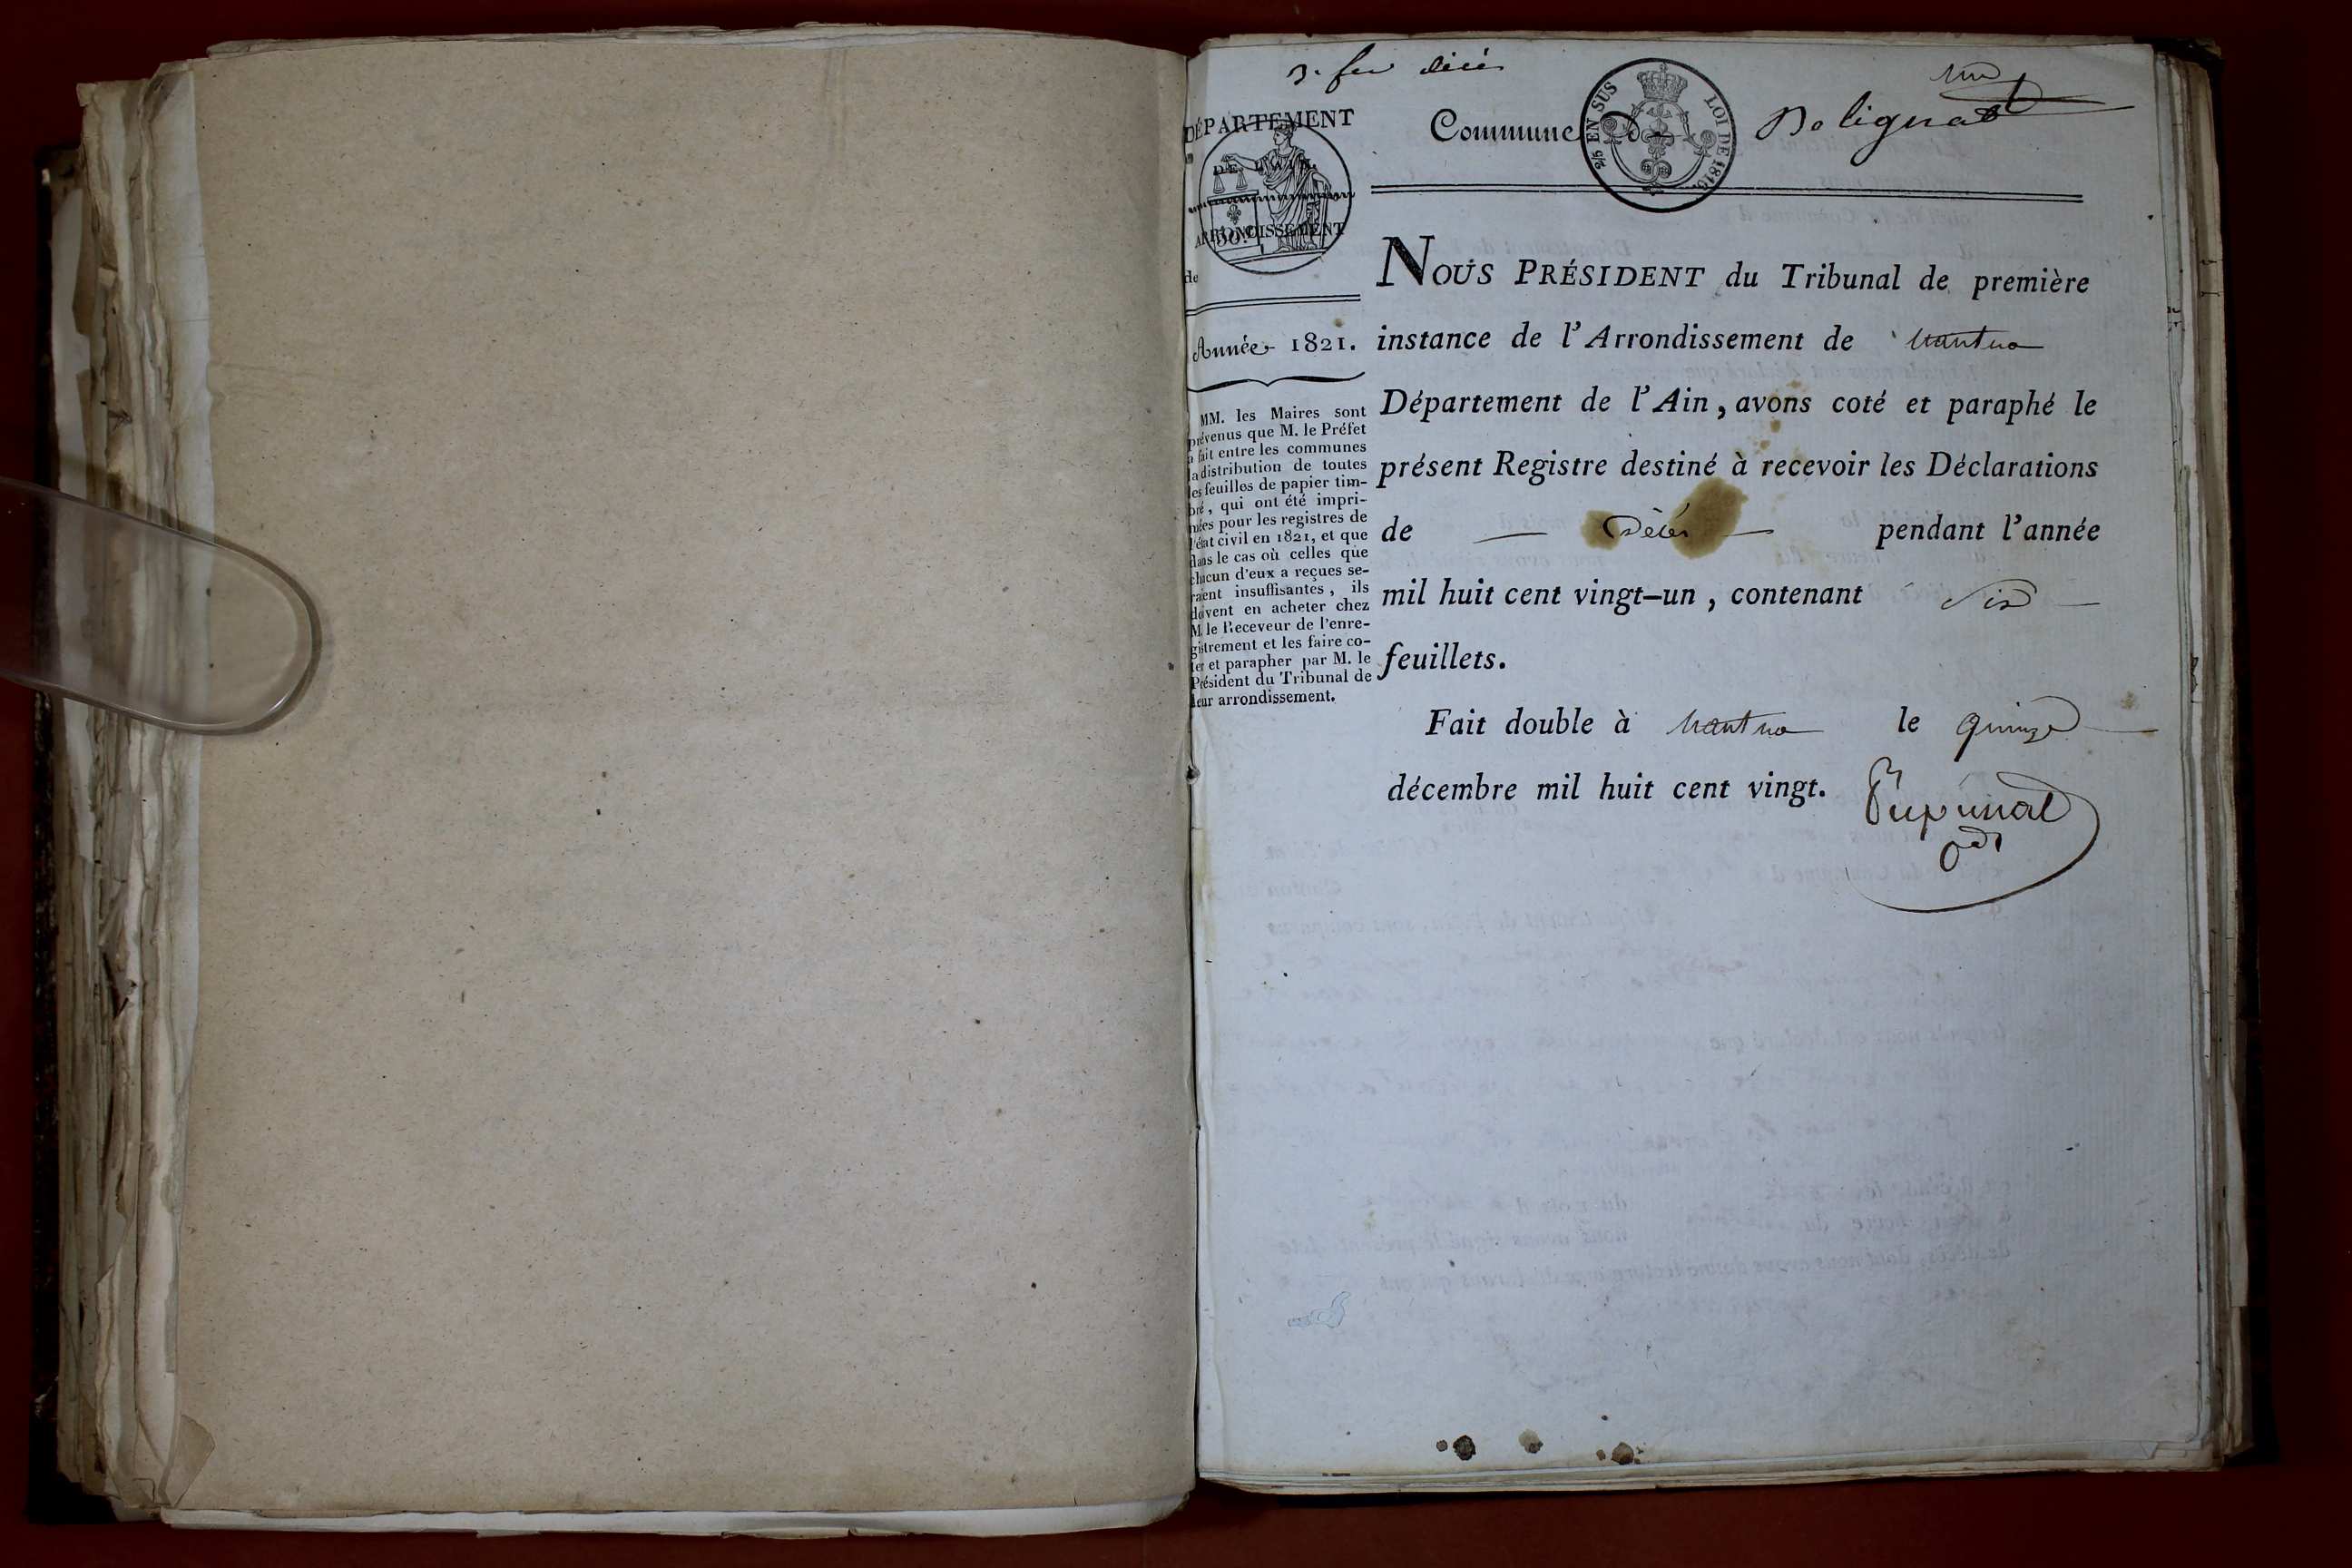 DÉPARTEMENT
DE L'AIN.
ARRONDISSEMENT
de
Année 1821.
MM. les Maires sont
prévenus que M. le Préfet
a fait entre les communes
la distribution de toutes
les feuilles de papier tim-
bré, qui ont été impri-
mées pour les registres de
l'état civil en 1821, et que
dans le cas où celles que
chacun d'eux a reçues se-
raient insuffisantes, ils
doivent en acheter chez
M. le Receveur de l'enre-
gistrement et les faire co-
ter et parapher par M. le
Président du Tribunal de
leur arrondissement.
Commune de Belignat
2/5 EN SUS LOI DE 1816.
NOUS PRÉSIDENT du Tribunal de première
instance de l'Arrondissement de Nantua
Département de l'Ain, avons coté et paraphé le
présent Registre destiné à recevoir les Déclarations
de Décès pendant l'année
mil huit cent vingt-un, contenant six
feuillets.
Fait double à Nantua le quinze
décembre mil huit cent vingt.